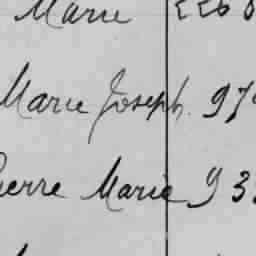 Marie 226
Marie Joseph. 97
Pierre Marie 93